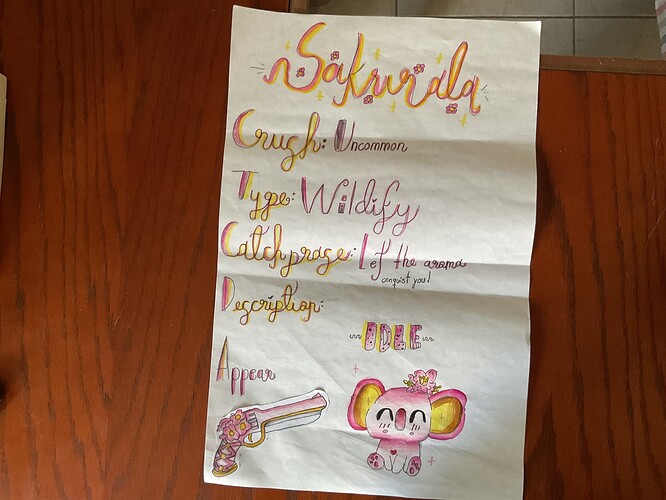 Sakurala
Crush: Uncommon
Type: Wildify
Catchprage: Let the aroma
conquist you!
Description:
IDLE
Appear